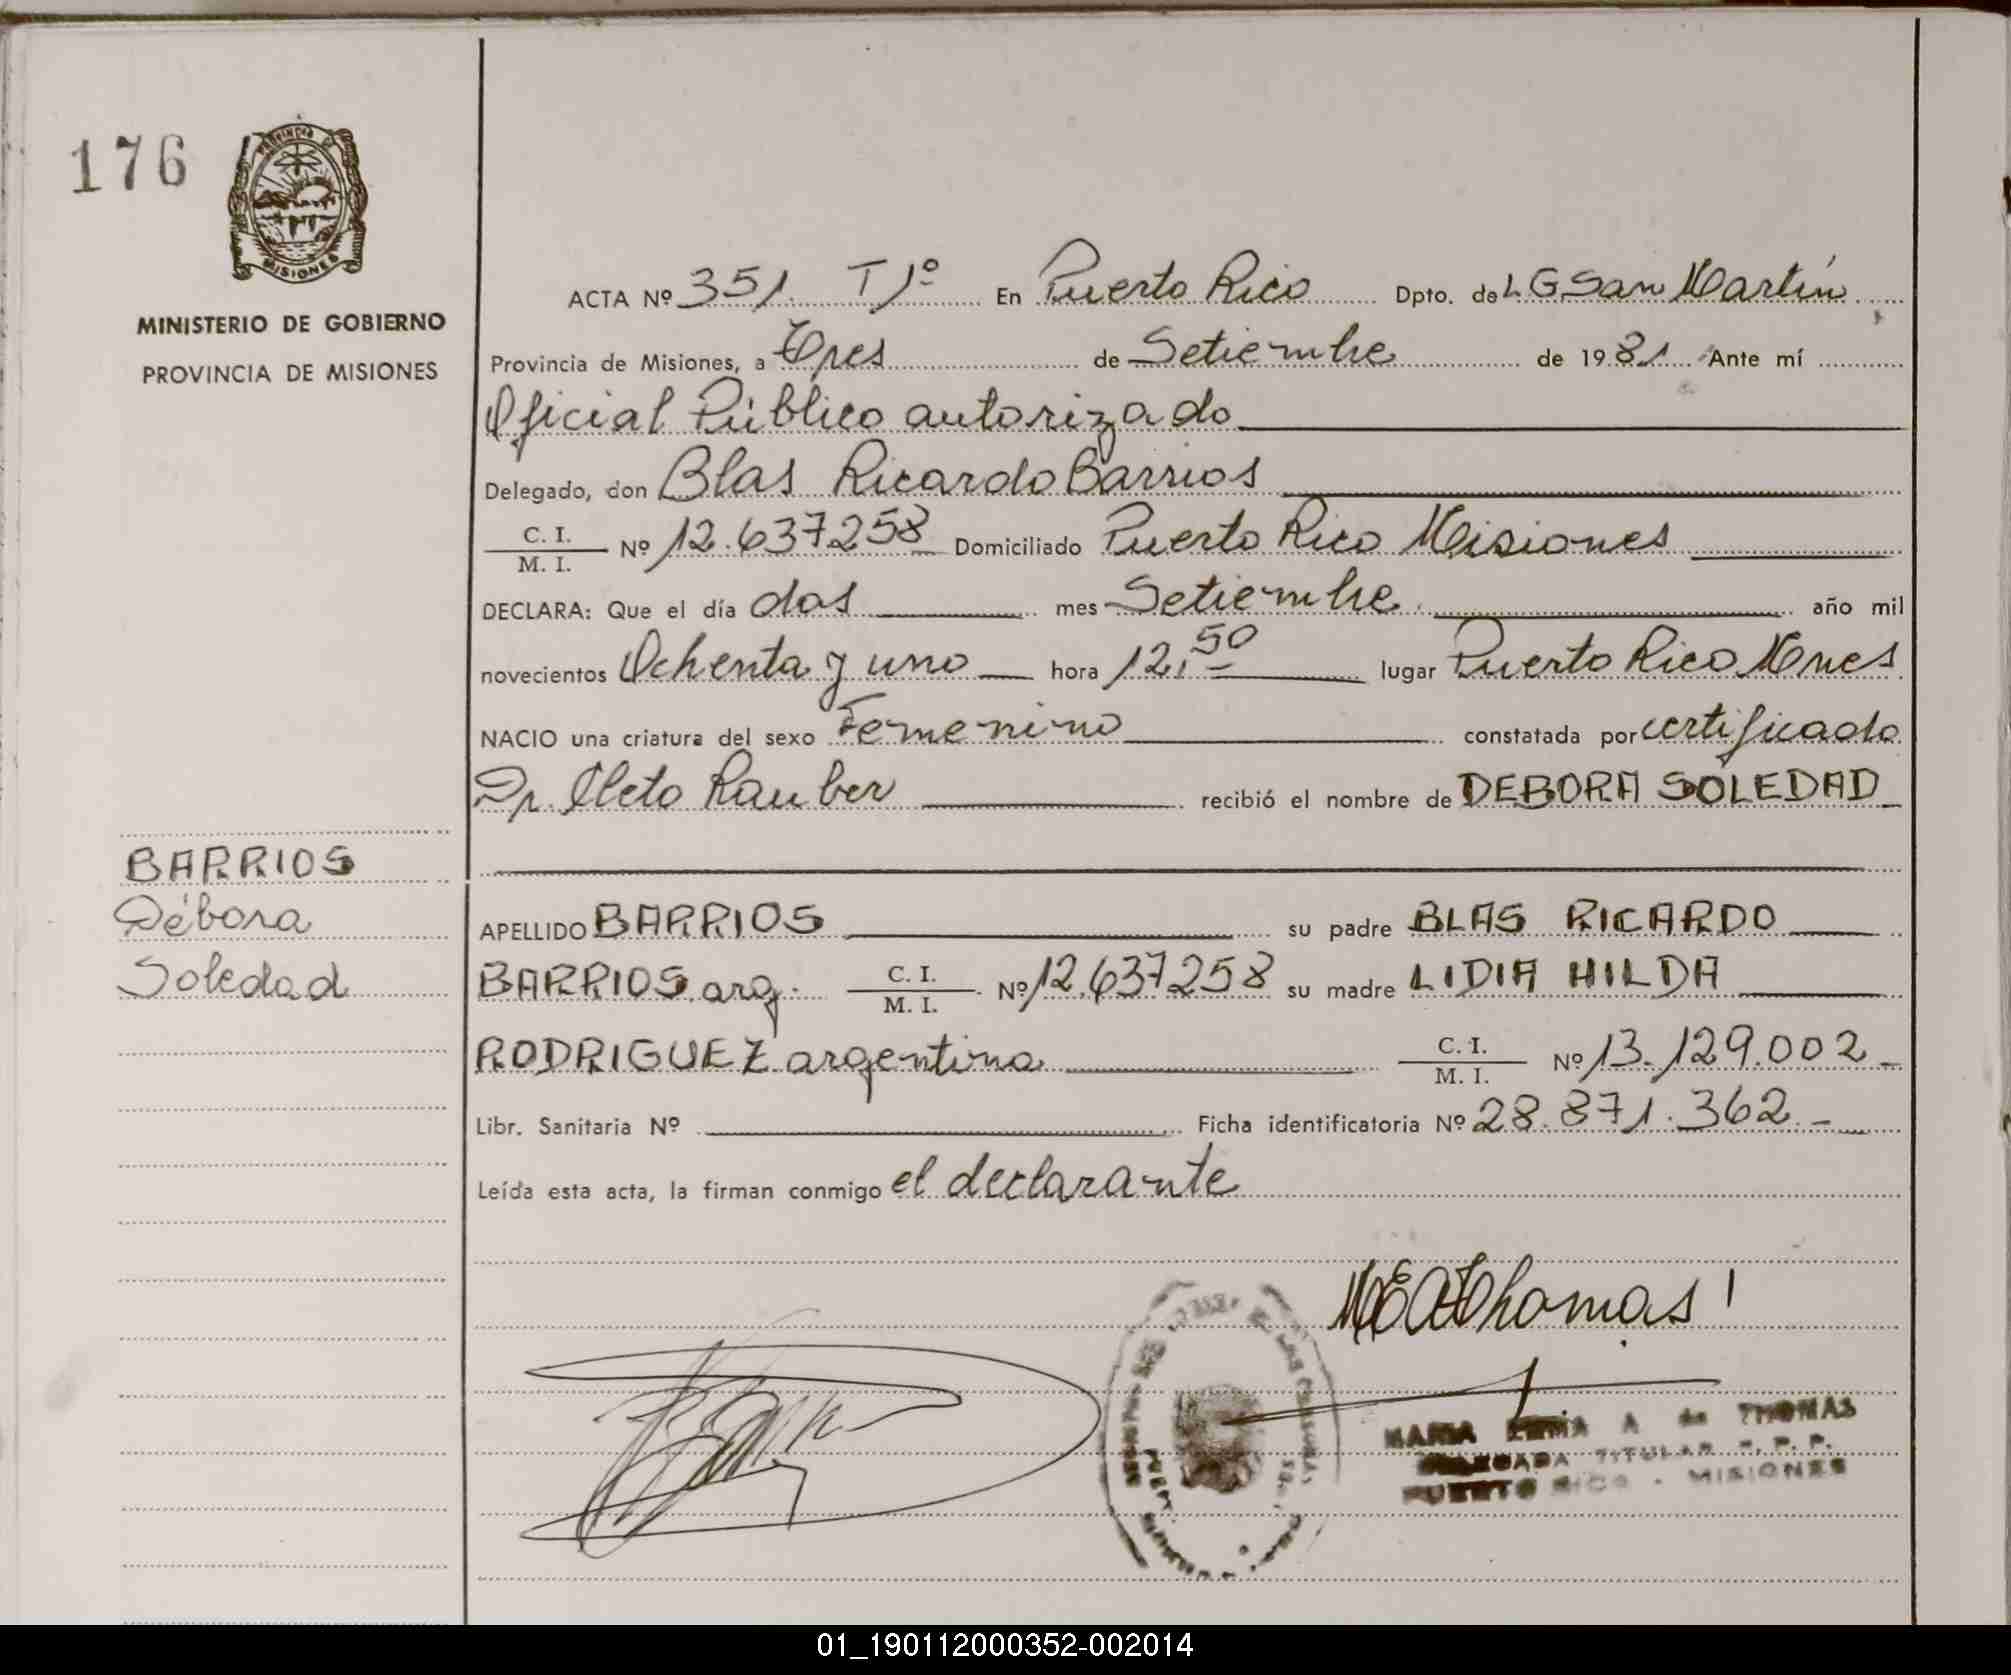 176
PROVINCIA DE
MISIONES
MINISTERIO DE GOBIERNO
PROVINCIA DE MISIONES
ACTA Nº 351. T 1º En Puerto Rico Dpto. de L G San Martín
Provincia de Misiones, a Tres de Setiembre de 1981 Ante mí
Oficial Público autorizado
Delegado, don Blas Ricardo Barrios
C. I.
M. I. Nº 12.637.258 Domiciliado Puerto Rico Misiones
DECLARA: Que el día dos mes Setiembre año mil
novecientos Ochenta y uno hora 12,50 lugar Puerto Rico Mnes
NACIO una criatura del sexo Femenino constatada por certificado
Dr. Cleto Rauber recibió el nombre de DEBORA SOLEDAD
BARRIOS
Débora
Soledad
APELLIDO BARRIOS su padre BLAS RICARDO
BARRIOS arg. C. I.
M. I. Nº 12.637258 su madre LIDIA HILDA
RODRIGUEZ argentina C. I.
M. I. Nº 13.129.002
Libr. Sanitaria Nº Ficha identificatoria Nº 28.871.362.-
Leída esta acta, la firman conmigo el declarante
Thomas
MARIA A de THOMAS
DELEGADA TITULAR R. P. P.
PUERTO RICO - MISIONES
01_190112000352-002014